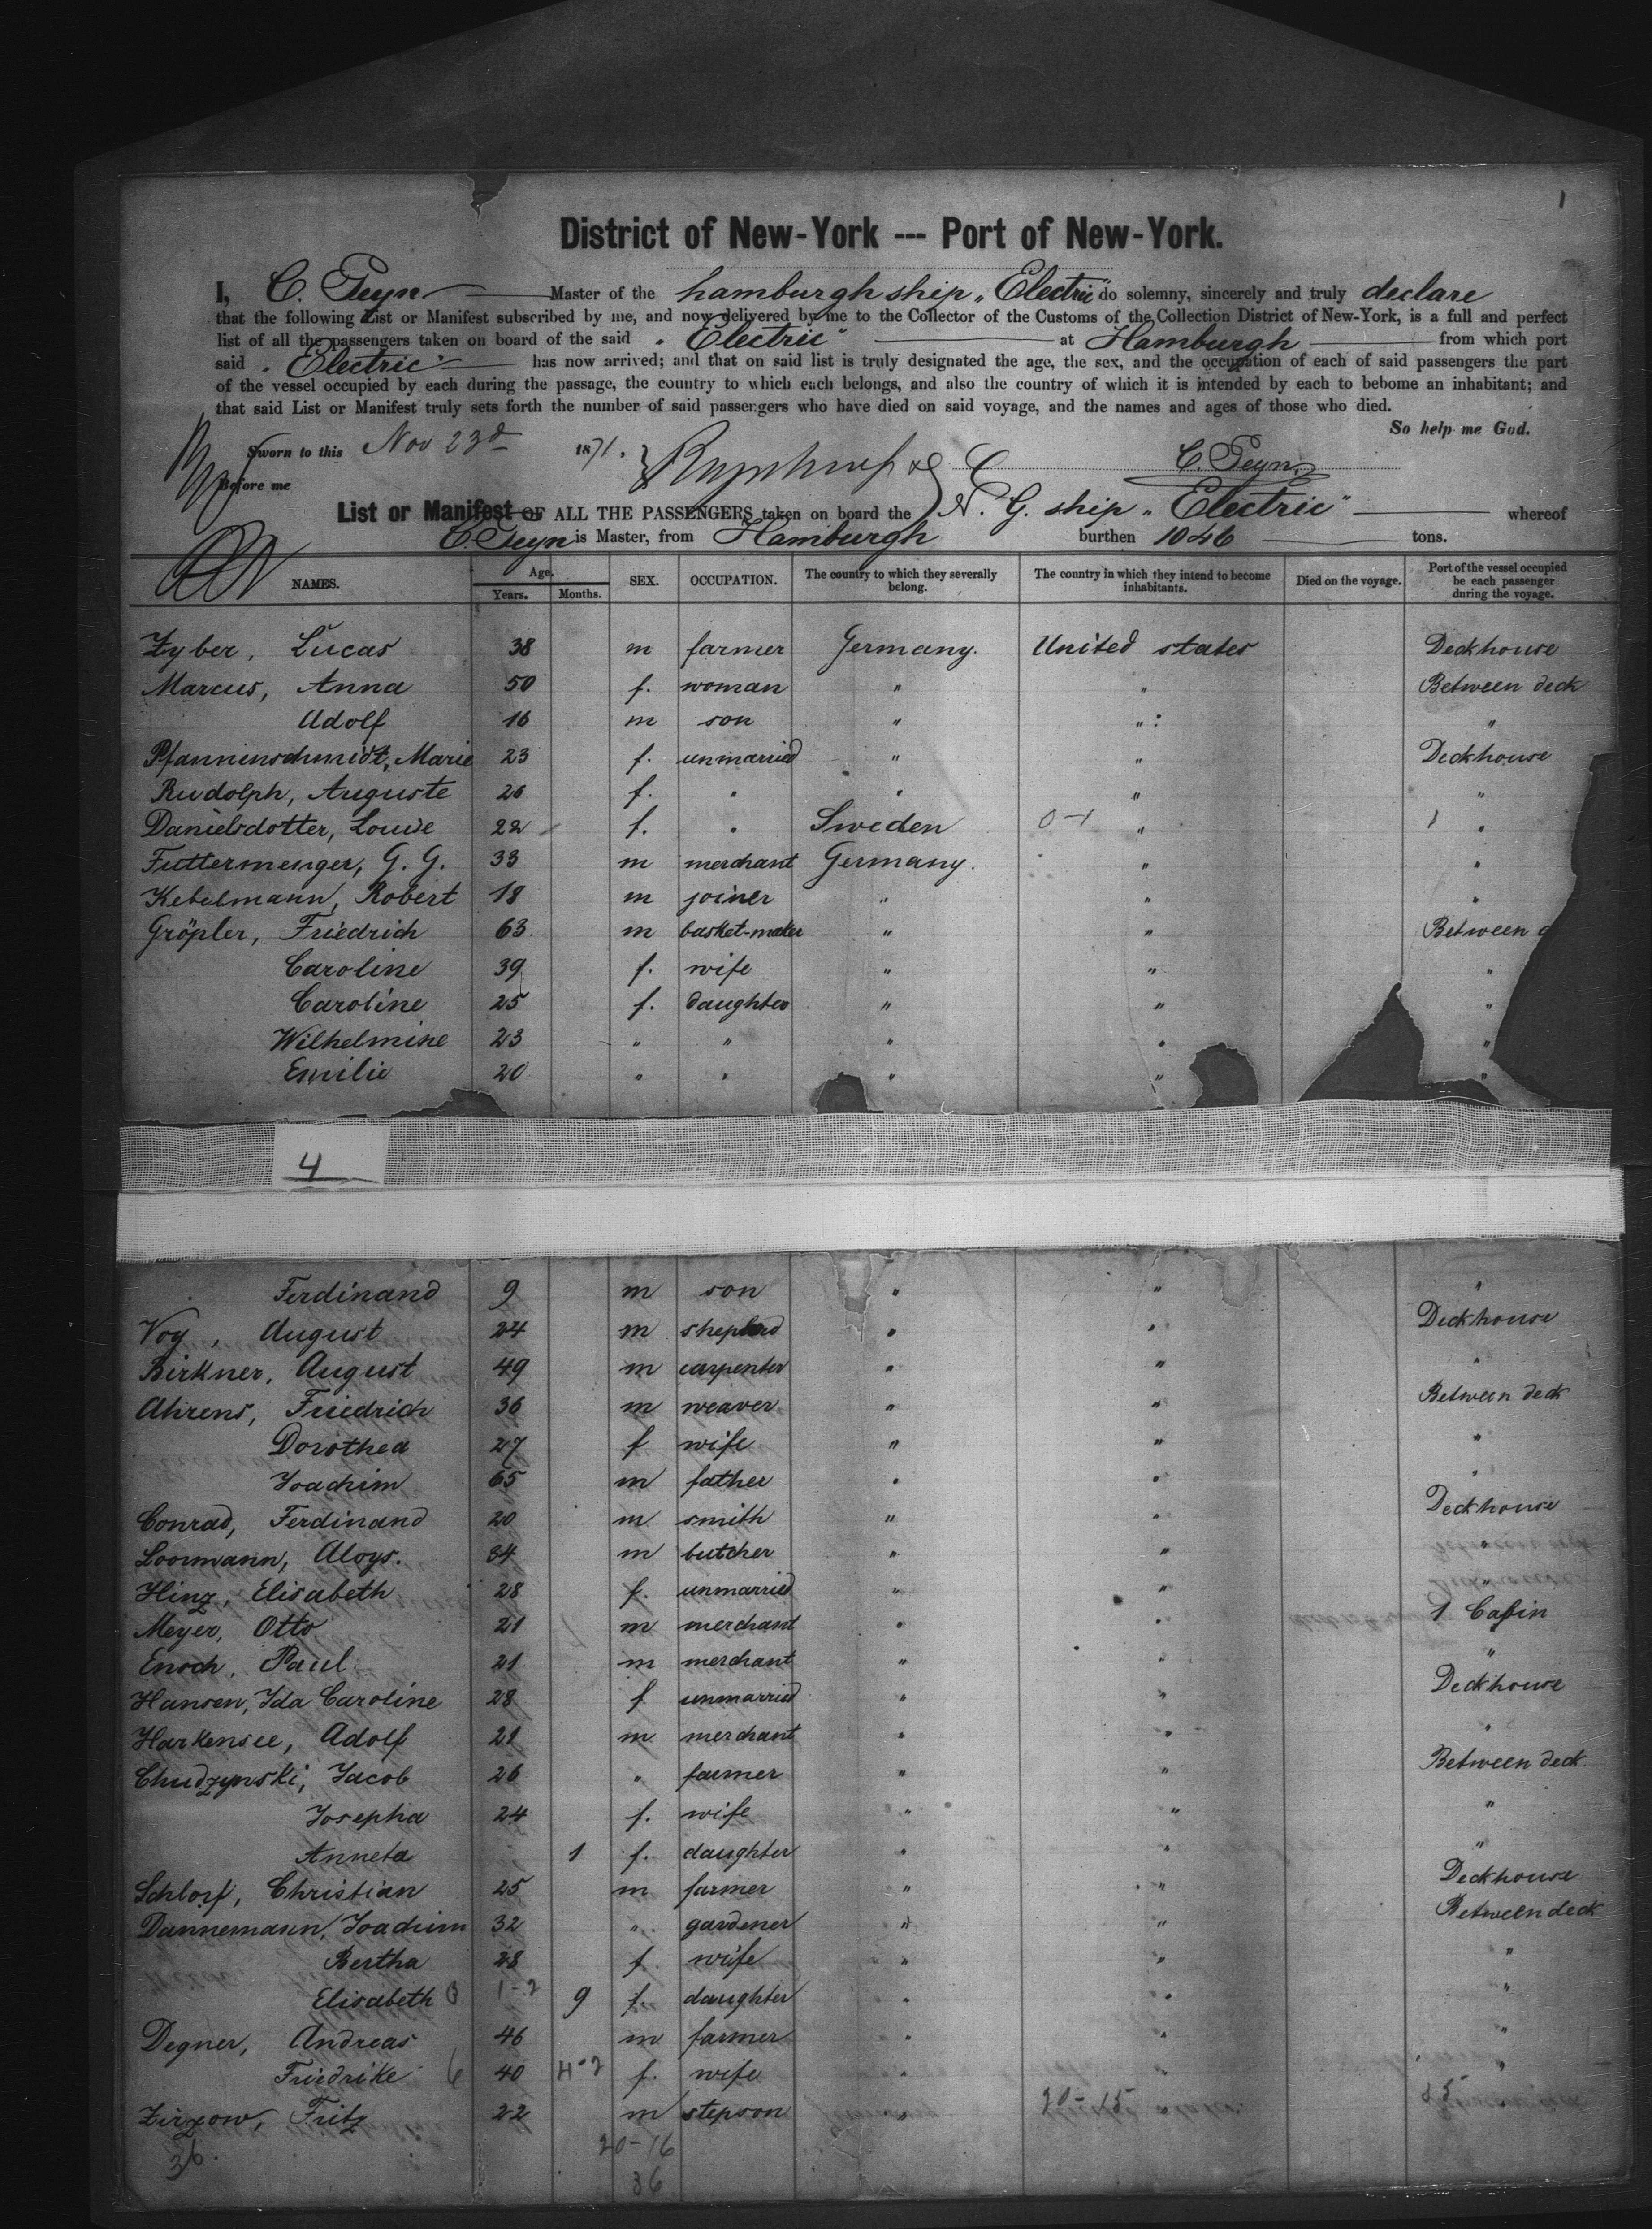 1
District of New-York --- Port of New-York.
I, C. Peyn Master of the hamburgh ship „Electric" do solemny, sincerely and truly declare
that the following List or Manifest subscribed by me, and now delivered by me to the Collector of the Customs of the Collection District of New-York, is a full and perfect
list of all the passengers taken on board of the said „Electric" at Hamburgh from which port
said „Electric" has now arrived; and that on said list is truly designated the age, the sex, and the occupation of each of said passengers the part
of the vessel occupied by each during the passage, the country to which each belongs, and also the country of which it is intended by each to bebome an inhabitant; and
that said List or Manifest truly sets forth the number of said passengers who have died on said voyage, and the names and ages of those who died.
So help me God.
Sworn to this Nov 23d 1871. C. Peyn
Before me
List or Manifest OF ALL THE PASSENGERS taken on board the N. G. ship „Electric" whereof
C. Peyn is Master, from Hamburgh burthen 1046 tons.
NAMES. Age. Years. Months. SEX. OCCUPATION. The country to which they severally belong. The country in which they intend to become inhabitants. Died on the voyage. Port of the vessel occupied be each passenger during the voyage.
Zyber, Lucas 38 m farmer Germany. United states Deckhouse
Marcus, Anna 50 f. woman " " Between deck
Adolf 16 m son " " "
Pfannenschmidt, Marie 23 f. unmarried " " Deckhouse
Rudolph, Auguste 26 f. " " " "
Danielsdotter, Louise 22 f. " Sweden 0-1 " 1 "
Futtermenger, G. G. 33 m merchant Germany. " "
Kebelmann, Robert 18 m joiner " " "
Gröpler, Friedrich 63 m basket-maker " " Between d
Caroline 39 f. wife " " "
Caroline 25 f. daughter " " "
Wilhelmine 23 " " " " "
Emilie 20 " " " " "
4
Ferdinand 9 m son " " "
Voy, August 24 m shepherd " " Deckhouse
Birkner, August 49 m carpenter " " "
Ahrens, Friedrich 36 m weaver " " Between deck
Dorothea 27 f wife " " "
Joachim 65 m father " " "
Conrad, Ferdinand 20 m smith " " Deckhouse
Loormann, Aloys. 34 m butcher " " "
Hinz, Elisabeth 28 f. unmarried " " "
Meyer, Otto 21 m merchant " " 1 Cabin
Enoch, Paul 21 m merchant " " "
Hansen, Ida Caroline 28 f unmarried " " Deckhouse
Harkensee, Adolf 21 m merchant " " "
Chudzynski, Jacob 26 " farmer " " Between deck
Josepha 24 f. wife " " "
Anneta 1 f. daughter " " "
Schlorf, Christian 25 m farmer " " Deckhouse
Dannemann, Joachim 32 " gardener " " Between deck
Bertha 28 f. wife " " "
Elisabeth 1-2 9 f. daughter " " "
Degner, Andreas 46 m farmer " " "
Friedrike 40 4-2 f. wife " " "
Zirzow, Fritz 22 m stepson " 20-15
36. 20-16
36